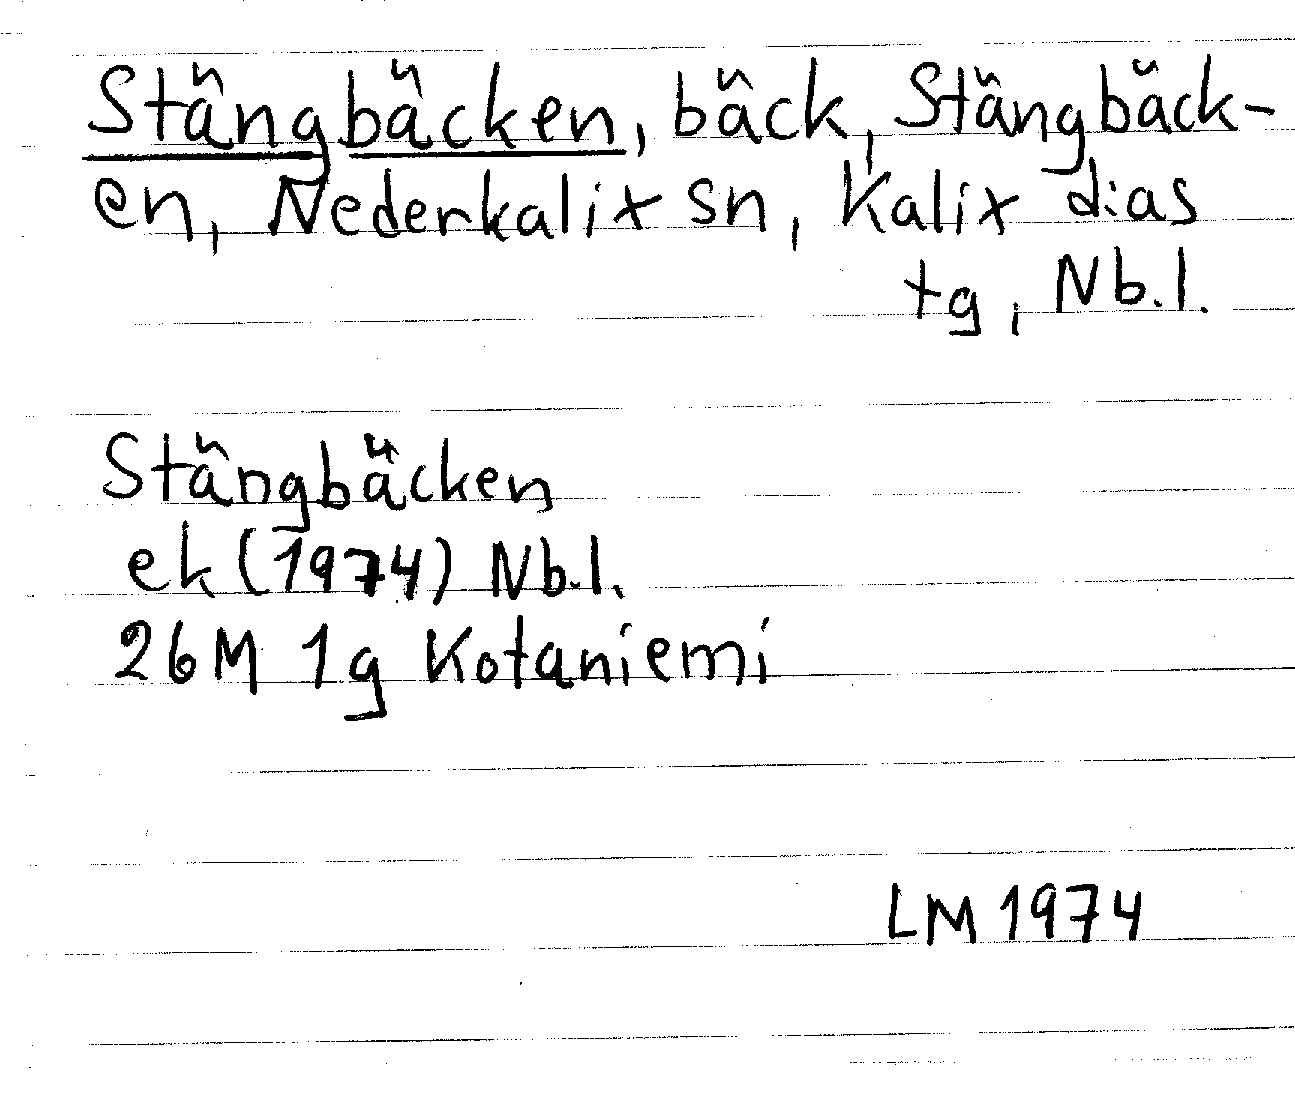 Stängbäcken, bäck, Stängbäck-
en, Nederkalix sn, Kalix dias
tg, Nb.l.
Stängbäcken
ek (1974) Nb.l.
26M 1g Kotaniemi
LM 1974